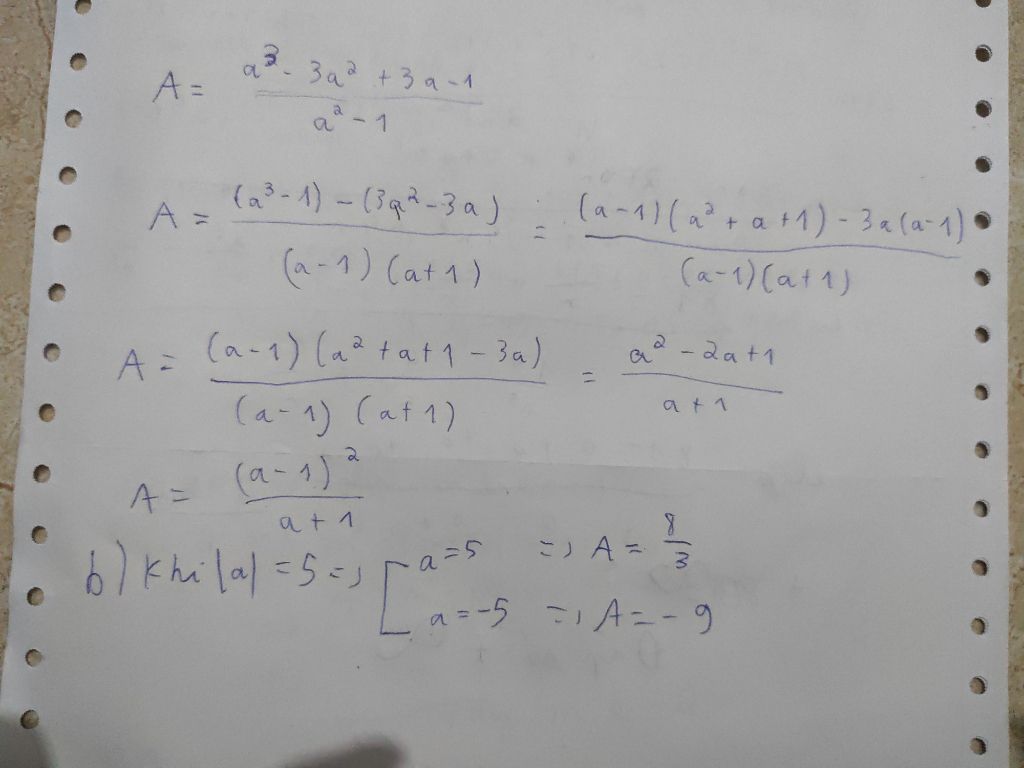 A = (a³ - 3a² + 3a - 1) / (a² - 1)
A = ((a³ - 1) - (3a² - 3a)) / ((a - 1)(a + 1)) = ((a - 1)(a² + a + 1) - 3a(a - 1)) / ((a - 1)(a + 1))
A = ((a - 1)(a² + a + 1 - 3a)) / ((a - 1)(a + 1)) = (a² - 2a + 1) / (a + 1)
A = (a - 1)² / (a + 1)
b) Khi |a| = 5 => [ a = 5 => A = 8/3
a = -5 => A = -9